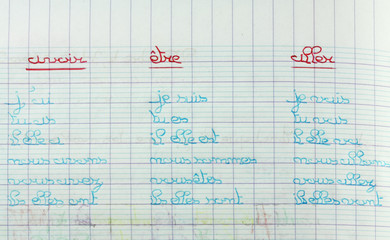 avoir être aller
j'ai je suis je vais
tu as tu es tu vas
il elle a il elle est il elle va
nous avons nous sommes nous allons
vous avez vous êtes vous allez
ils elles ont ils elles sont ils elles vont